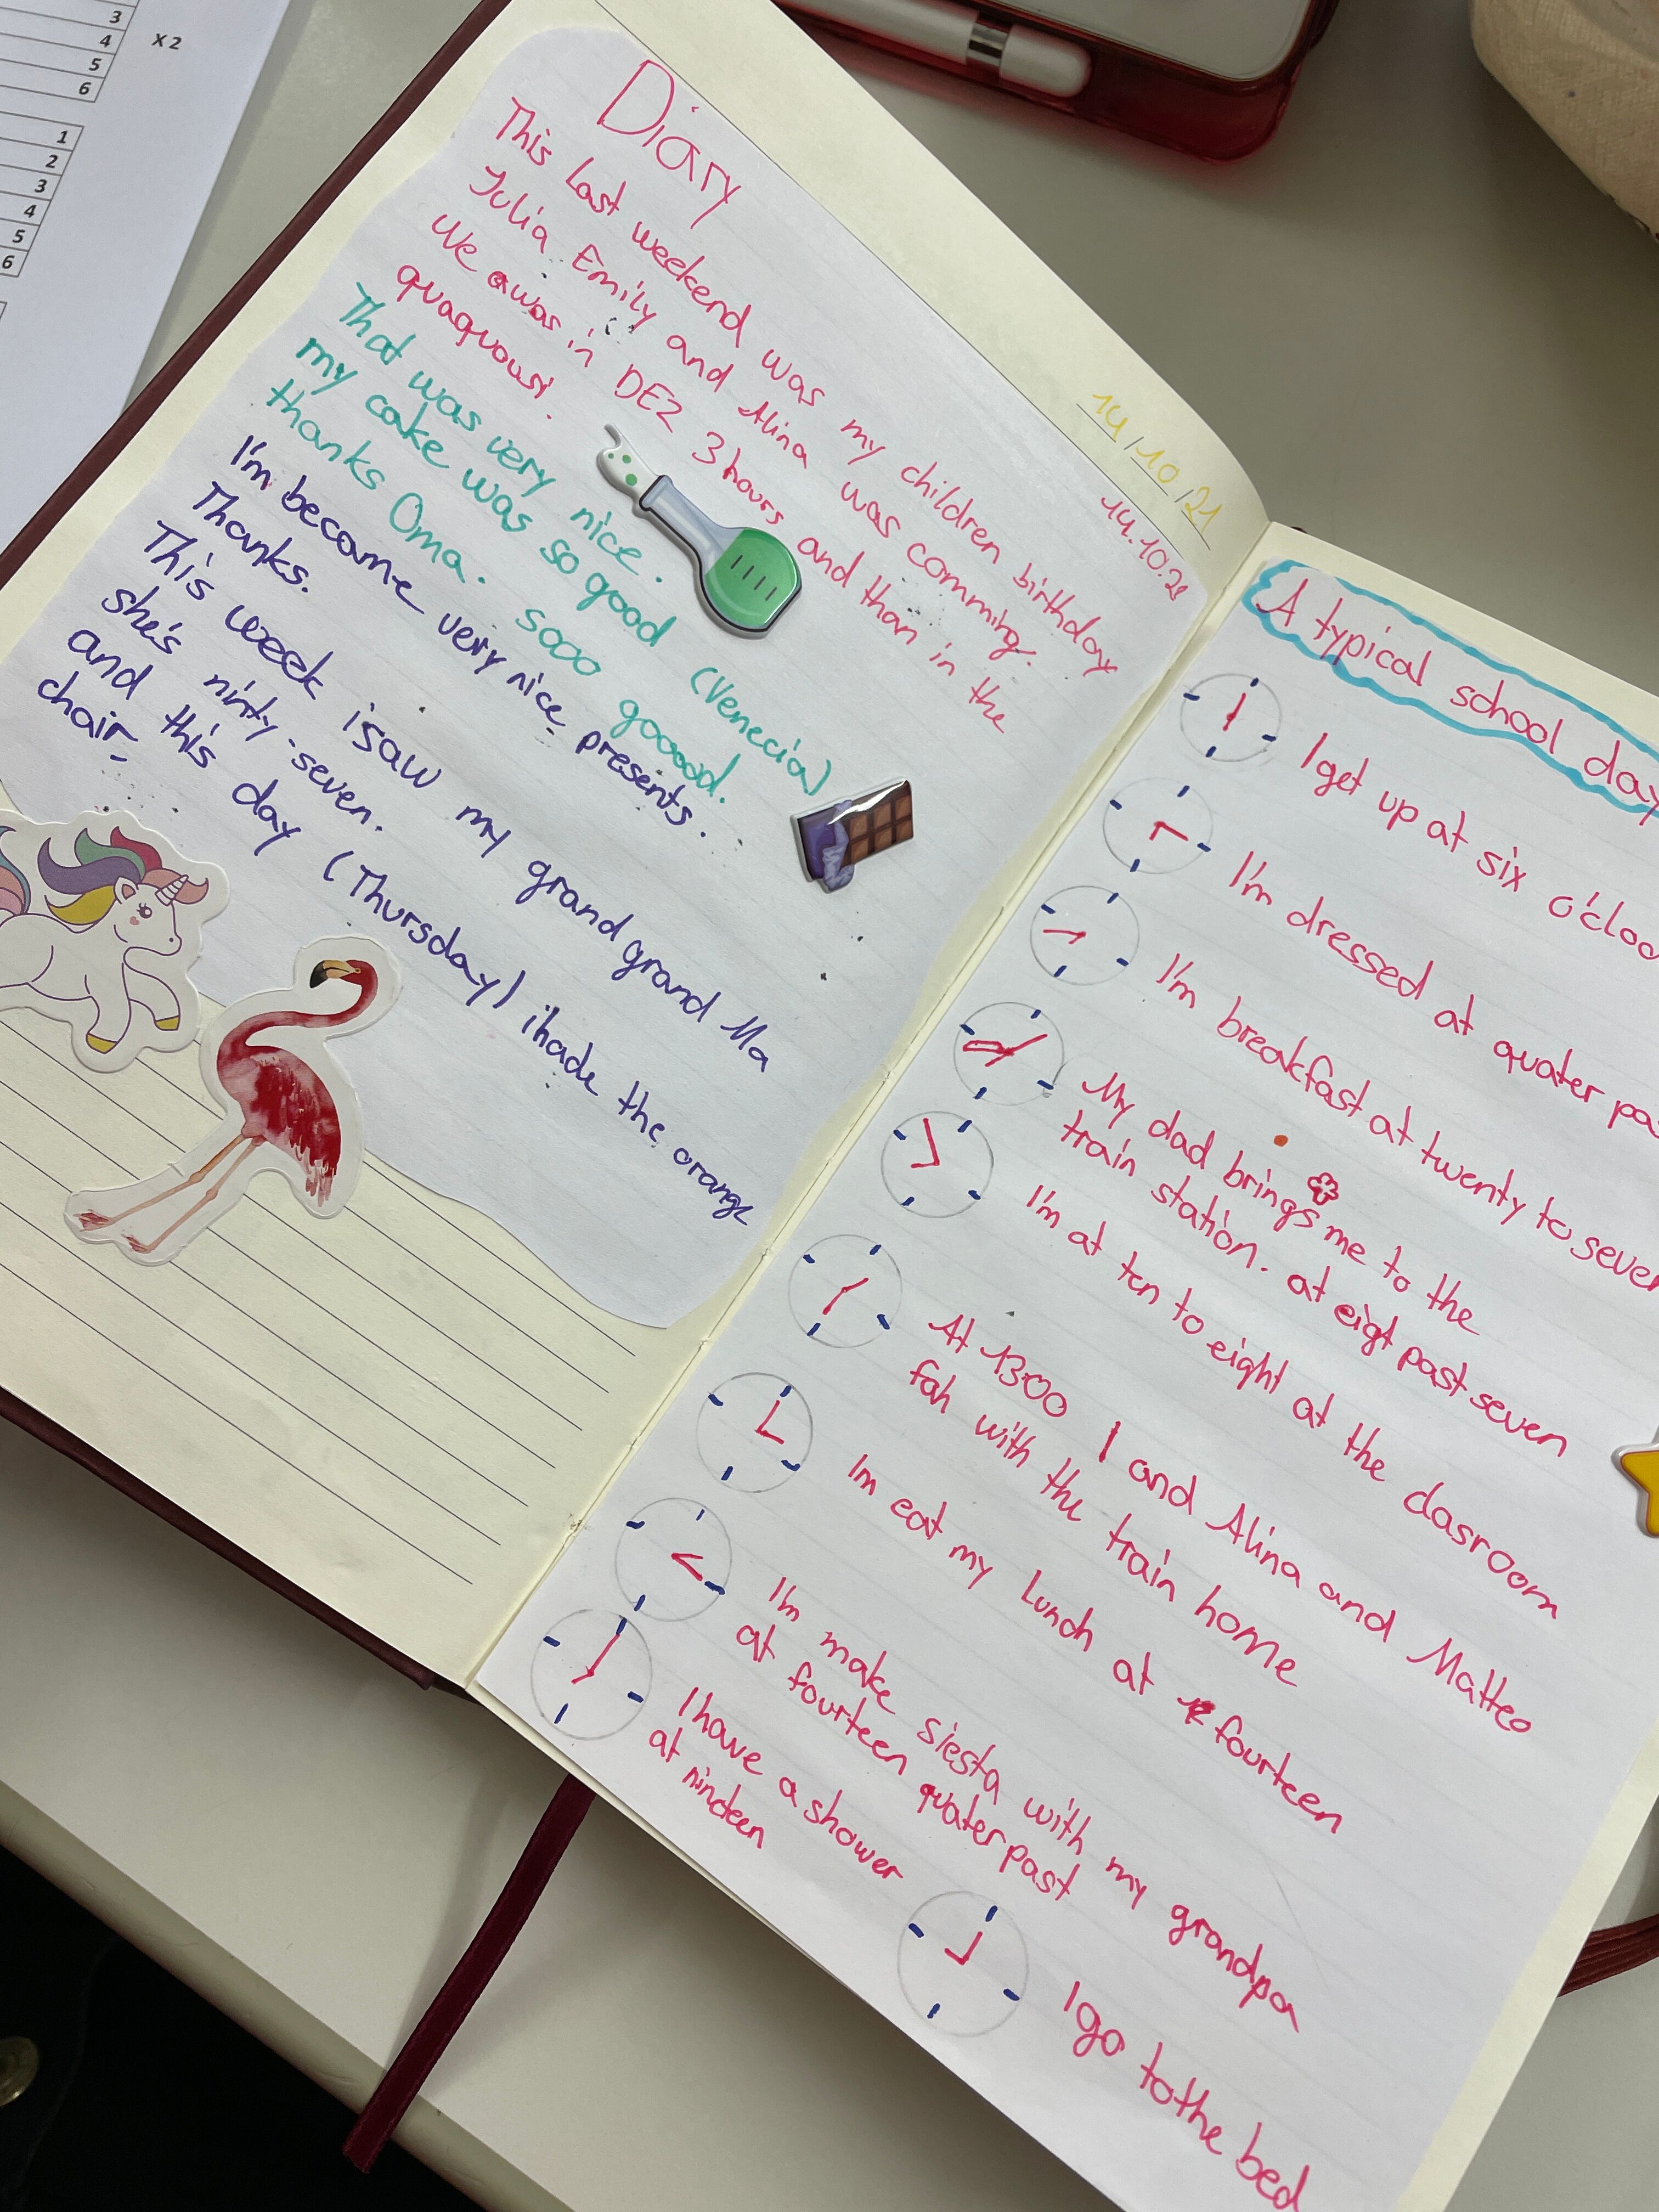 3
4
5
6
X 2
1
2
3
4
5
6
Diary
14/10/21
14.10.21
This last weekend was my children birthday
Julia Emily and Alina was comming.
We was in DEZ 3 hours and than in the
quaquousi.
That was very nice.
my cake was so good (Venecia)
thanks Oma. sooo gooood.
I'm become very nice presents.
Thanks.
This week i saw my grand grand Ma
she's ninty-seven.
and this day (Thursday) i hade the orange
chair
A typical school day
I get up at six o'cloc
I'm dressed at quater pa
I'm breakfast at twenty to seven
My dad brings me to the
train station. at eigt past seven
I'm at ten to eight at the clasroom
At 1300 I and Alina and Matteo
fah with the train home
Im eat my Lunch at fourteen
I'm make siesta with my grandpa
at fourteen quater past
I have a shower
at nindeen
I go to the bed